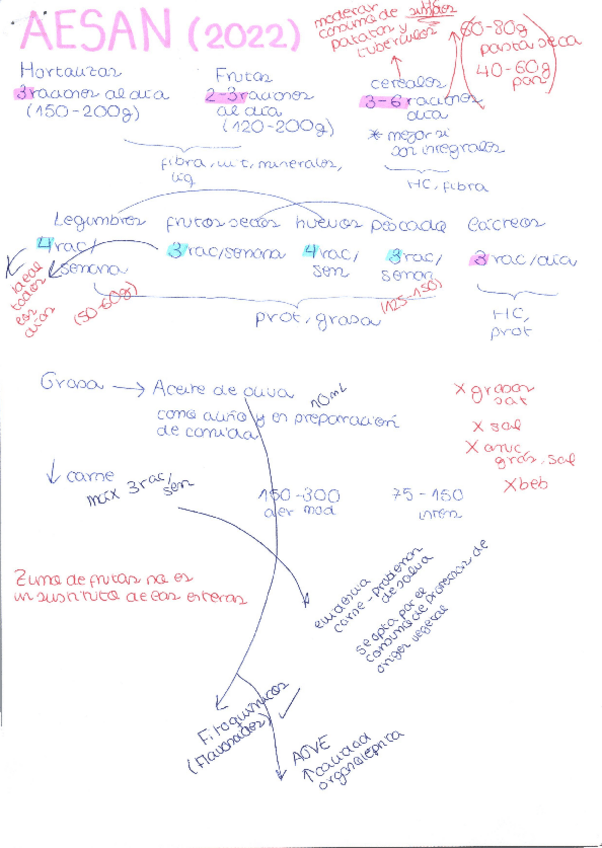 AESAN (2022)
moderar
consumo de
patatas y
tubérculos
60-80g
pasta seca
40-60g
pan
Hortalizas
3 raciones al día
(150-200g)
Frutas
2-3 raciones
al día
(120-200g)
cereales
3-6 raciones
día
* mejor si
son integrales
fibra, vit, minerales,
HC, fibra
Legumbres frutos secos huevos pescado lácteos
4 rac/
semana
3 rac/semana
4 rac/
sem
3 rac/
seman
3 rac/día
ideal
todos
los
días
(50-60g)
prot, grasa
(125-150)
HC,
prot
Grasa → Aceite de oliva 10mL
como aliño y en preparación
de comida
X grasas
sat
X sal
X azuc,
gras, sal
X beb
↓ carne
max 3 rac/
sem
150-300
aer mod
75-150
inten
Zumo de frutas no es
un sustituto de las enteras
evidencia
carne - problemas
de salud
se opta por el
consumo de proteínas de
origen vegetal
Fitoquímicos
(flavonoides)
AOVE
↑ calidad
organoléptica